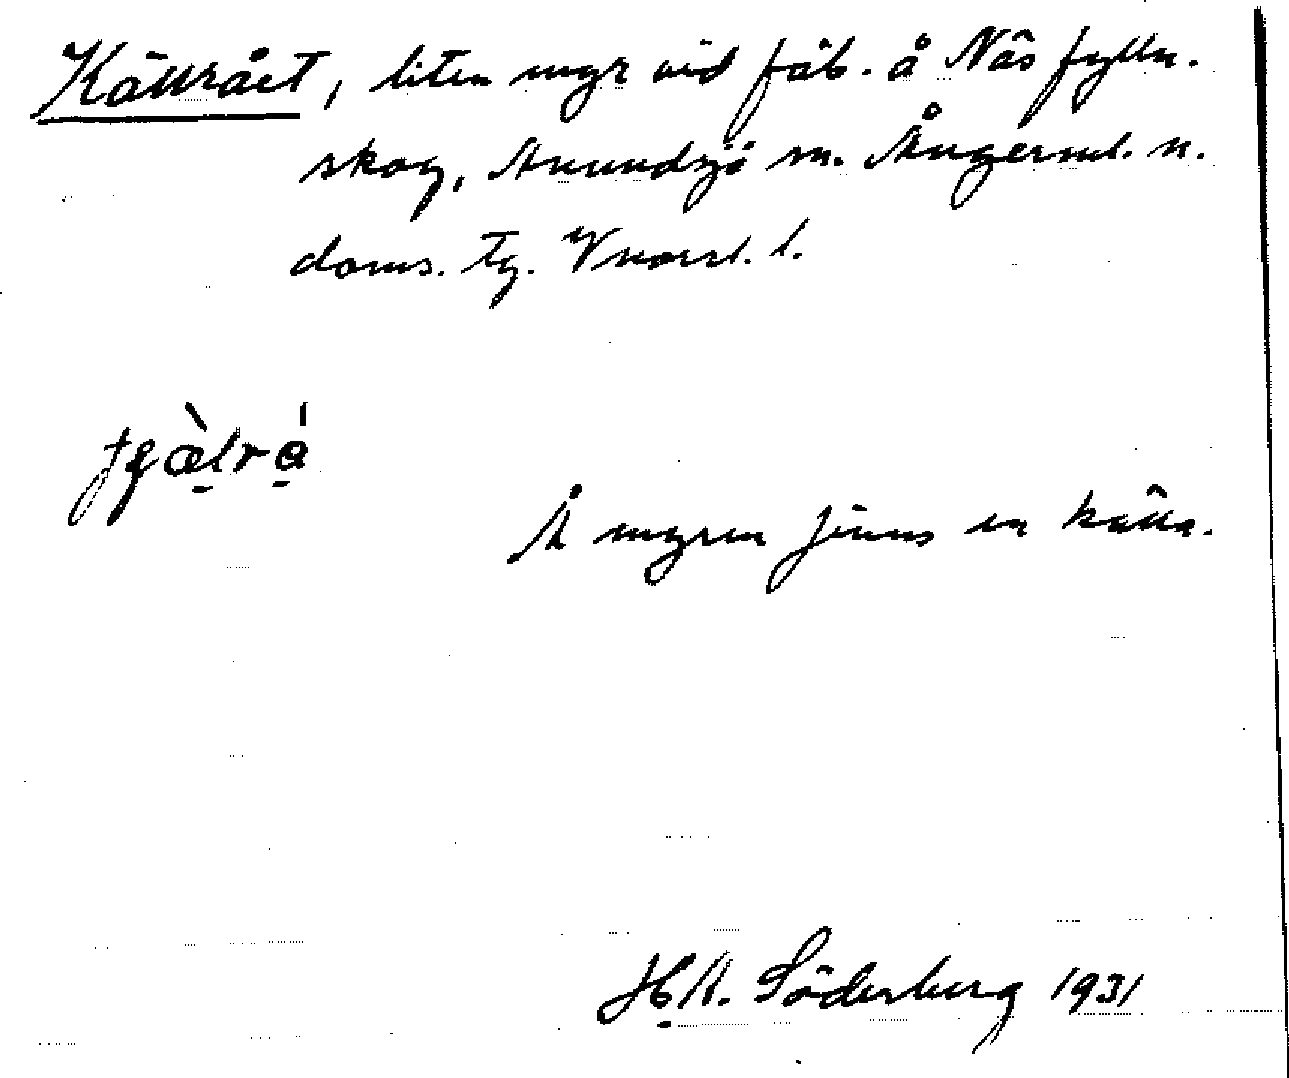 Källrået, liten myr vid fäb. å Näs fylln.
skog, Anundsjö sn. Ångerml. n.
doms. tg. Vnorrl. l.
Å myren finns en källa.
H.A. Söderberg 1931